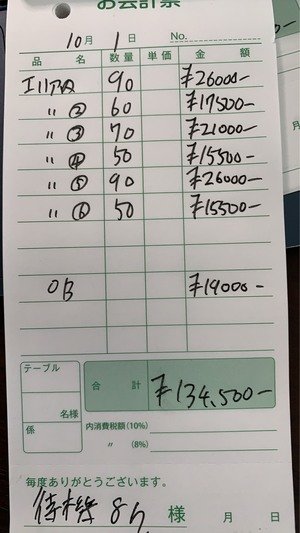 お会計票
10月 1日 No.
品名 数量 単価 金額
90 ¥26000-
〃 ② 60 ¥17500-
〃 ③ 70 ¥21000-
〃 ④ 50 ¥15500-
〃 ⑤ 90 ¥26000-
〃 ⑥ 50 ¥15500-
OB ¥19000-
テーブル
名様
係
合計 ¥134,500-
内消費税額(10%)
〃 (8%)
毎度ありがとうございます。
待機 8h 様 月 日